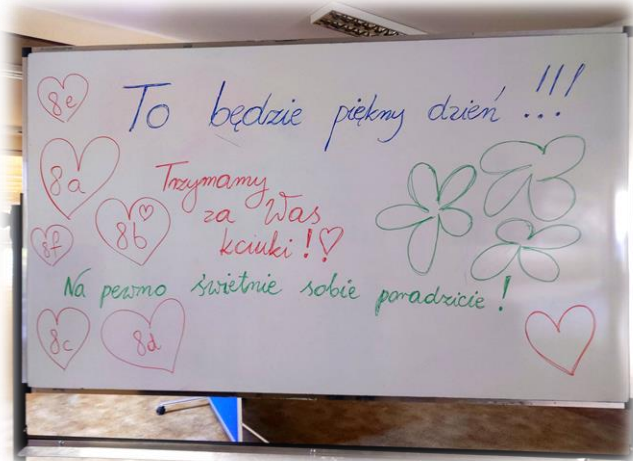 8e
To będzie piękny dzień...!!!
8a
Trzymamy
za Was
kciuki!♡
8b
8f
Na pewno świetnie sobie poradzicie!
8c
8d